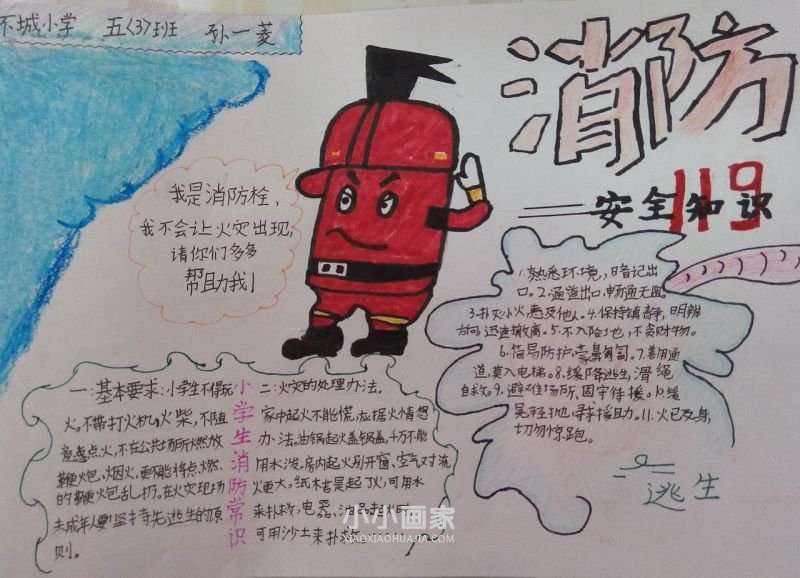 城小学 五〈3〉班 孙一菱
消防
119
——安全知识
我是消防栓，
我不会让火灾出现，
请你们多多
帮助我！
1.熟悉环境，暗记出
口。2.通道出口，畅通无阻。
3.扑灭小火，惠及他人。4.保持镇静，明辨
方向，迅速撤离。5.不入险地，不贪财物。
6.简易防护，蒙鼻匍匐。7.善用通
道，莫入电梯。8.缓降逃生，滑绳
自救。9.避难场所，固守待援。10.缓
晃轻抛，寻求援助。11.火已及身，
切勿惊跑。
逃生
一：基本要求：小学生不得玩
火。不带打火机，火柴，不随
意点火，不在公共场所燃放
鞭火包，烟火，更不能将点燃
的鞭火包乱扔。在火灾现场
未成年人要坚持先逃生的原
则。
小学生消防常识
二：火灾的处理办法。
家中起火不能慌，应据火情想
办法。油锅起火盖锅盖，千万不能
用水泼。房内起火别开窗，空气对流
火更大。纸木岩是起了火，可用水
来扑救，电器、油品起火时
可用沙土来扑救
小小画家
XIAOXIAOHUAJIA.COM